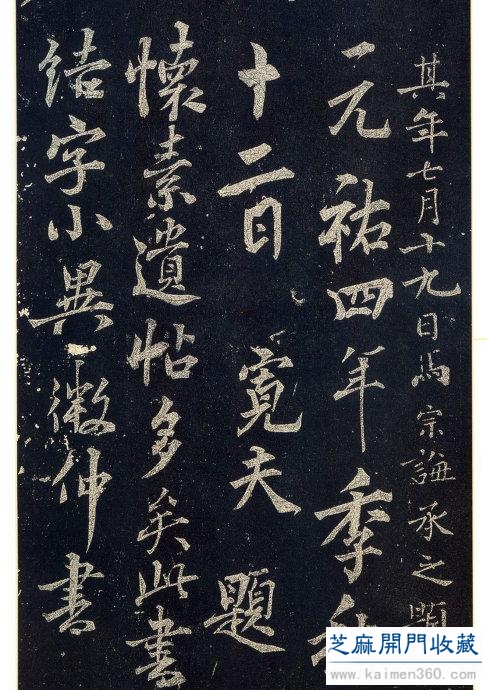 其年七月十九日馮宗誨承之題
元祐四年季秋
十二日寬夫題
懷素遺帖多矣此書
結字小異微仲書
芝麻開門收藏
www.kaimen360.com